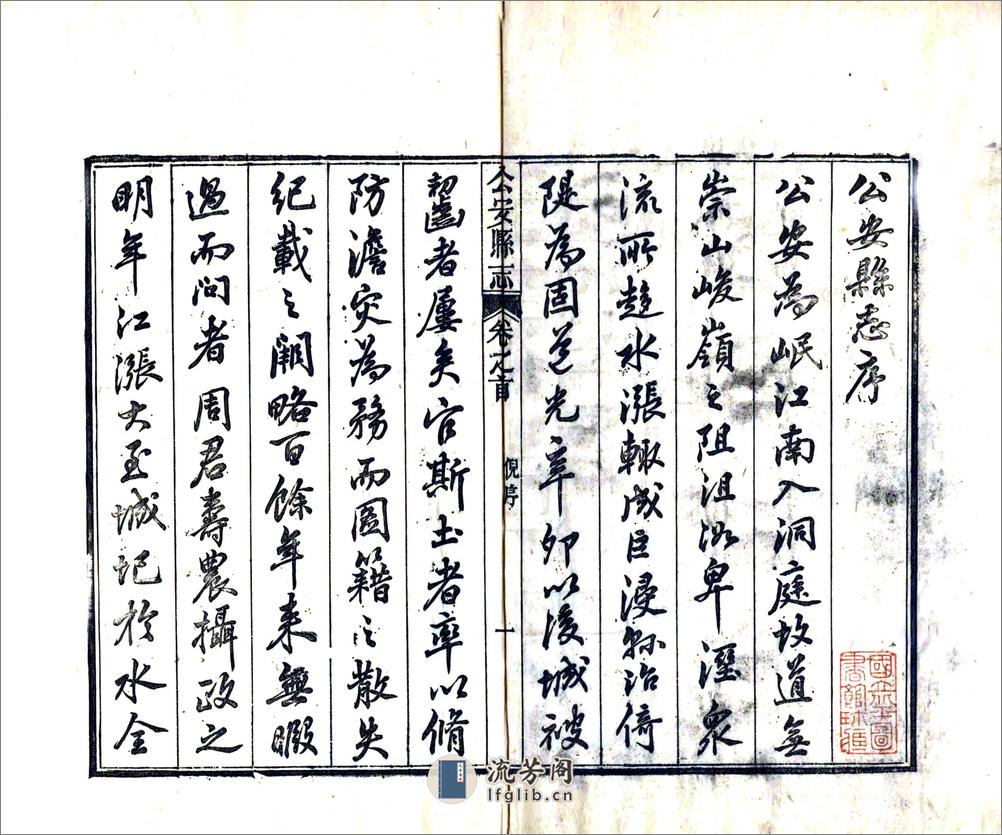 公安縣志序
公安為岷江南入洞庭故道無
崇山峻嶺之阻沮洳卑溼眾
流所趨水漲輒成巨浸縣治倚
隄為固道光辛卯以後城被
公安縣志 卷之首 倪序 一
齧者屢矣官斯土者率以脩
防澹災為務而圖籍之散失
紀載之闕略百餘年來無暇
過而問者周君壽農攝政之
明年江漲大至城圮於水全
流芳阁
lfglib.cn